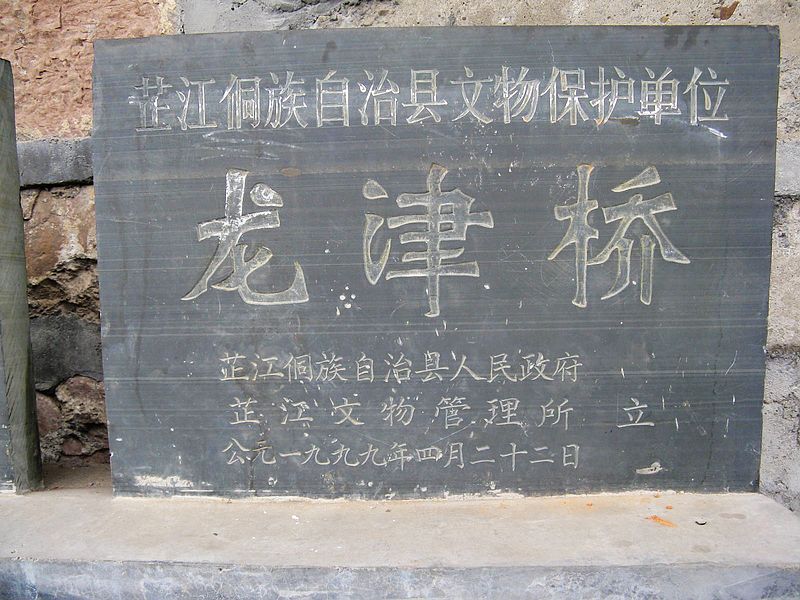 芷江侗族自治县文物保护单位
龙津桥
芷江侗族自治县人民政府
芷江文物管理所 立
公元一九九九年四月二十二日